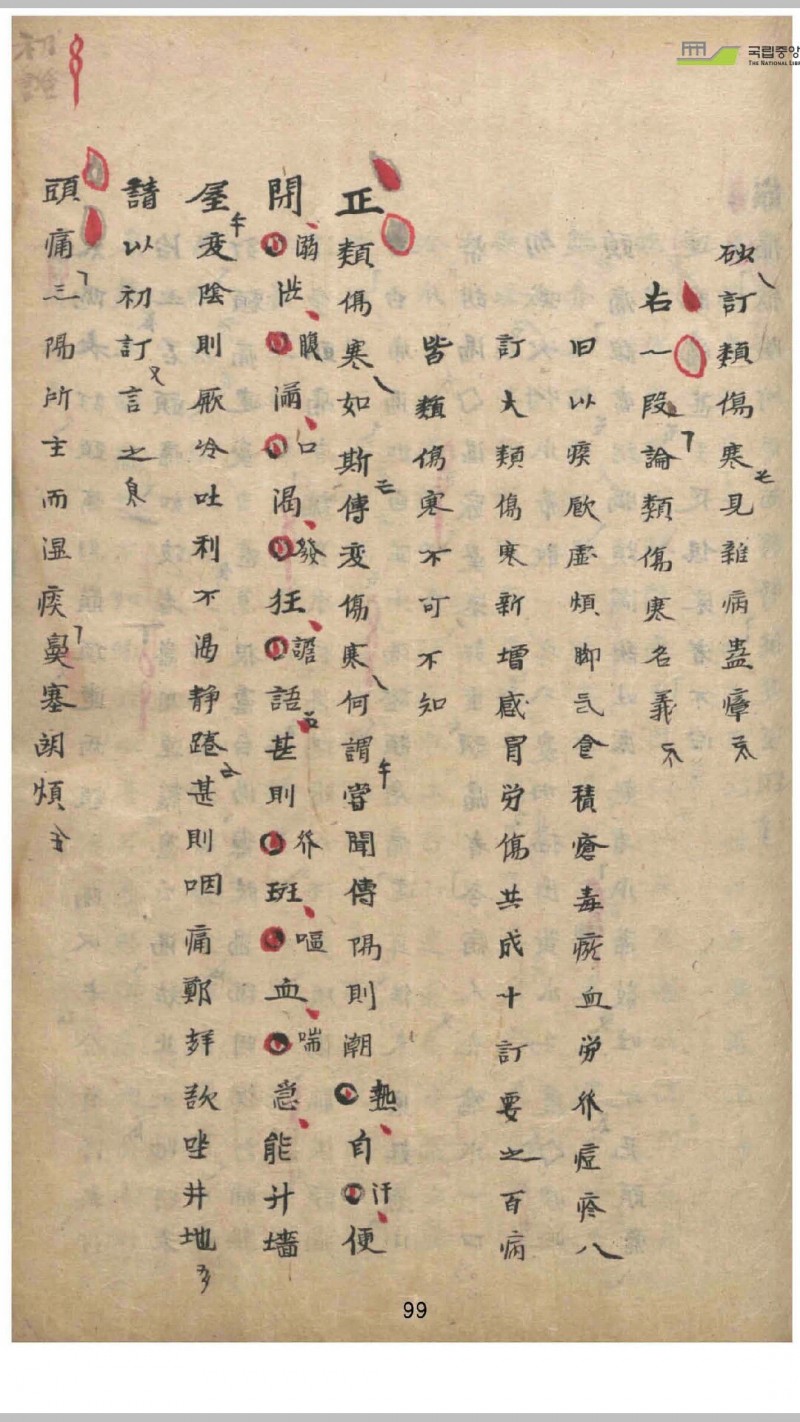 국립중앙
THE NATIONAL LIBR
訂類傷寒見雜病蠱瘴
右一段論類傷寒名義
旧以痰厥虛煩脚气食積瘡毒瘀血労發痘疹八
訂大類傷寒新增感冒労傷共成十訂要之百病
皆類傷寒不可不知
正類傷寒如斯傳変傷寒何謂嘗聞傳陽則潮熱自汗便
閉溺澁腹滿口渴發狂譫語甚則發斑嘔血喘急能升墻
屋変陰則厥冷吐利不渴静踡甚則咽痛鄭聲欬坐井地
請以初訂言之
頭痛三陽所主而湿痰鼻塞煩
99